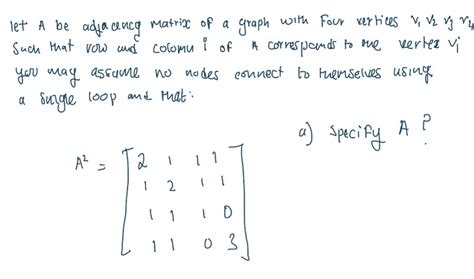 let A be adjacency matrix of a graph with four vertices v1 v2 v3 v4
Such that row and colomn i of A corresponds to the vertex vi
you may assume no nodes connect to themselves using
a single loop and that:
a) specify A ?
A² = [2 1 1 1
1 2 1 1
1 1 1 0
1 1 0 3]